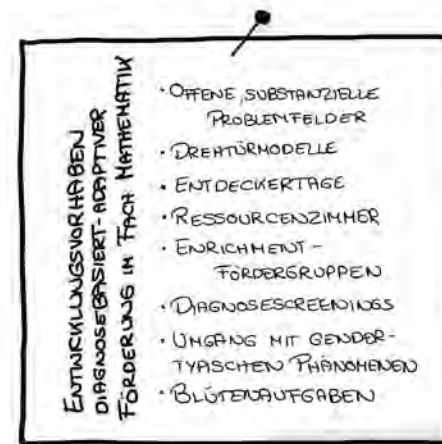 ENTWICKLUNGSVORHABEN
DIAGNOSEBASIERT-ADAPTIVER
FÖRDERUNG IM FACH MATHEMATIK
· OFFENE, SUBSTANZIELLE
PROBLEMFELDER
· DREHTÜRMODELLE
· ENTDECKERTAGE
· RESSOURCENZIMMER
· ENRICHMENT-
FÖRDERGRUPPEN
· DIAGNOSESCREENINGS
· UMGANG MIT GENDER-
TYPISCHEN PHÄNOMENEN
· BLÜTENAUFGABEN